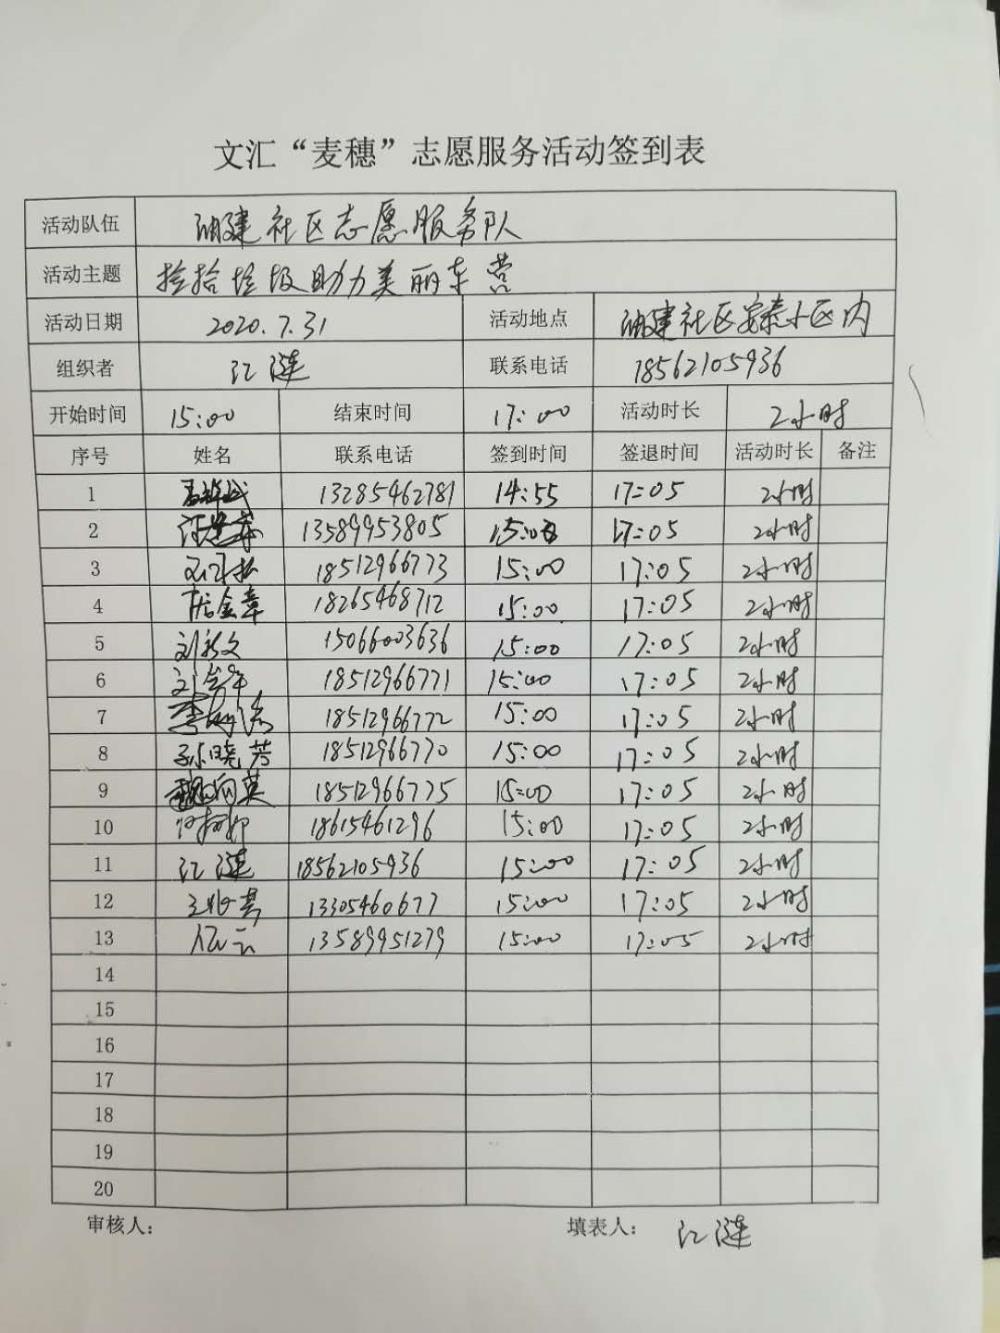 文汇“麦穗”志愿服务活动签到表
活动队伍 油建社区志愿服务队
活动主题 捡拾垃圾助力美丽东营
活动日期 2020.7.31 活动地点 油建社区安泰小区内
组织者 江涟 联系电话 18562105936
开始时间 15:00 结束时间 17:00 活动时长 2小时
序号 姓名 联系电话 签到时间 签退时间 活动时长 备注
1 13285462781 14:55 17:05 2小时
2 13589953805 17:05 2小时
3 18512966773 15:00 17:05 2小时
4 金章 18265468712 15:00 17:05 2小时
5 刘新文 15066003636 15:00 17:05 2小时
6 刘 18512966771 15:00 17:05 2小时
7 李 18512966772 15:00 17:05 2小时
8 孙晓芳 18512966770 15:00 17:05 2小时
9 英 18512966775 15:00 17:05 2小时
10 18615461296 15:00 17:05 2小时
11 江涟 18562105936 15:00 17:05 2小时
12 13305460677 15:00 17:05 2小时
13 13589951279 15:00 17:05 2小时
14
15
16
17
18
19
20
审核人： 填表人： 江涟